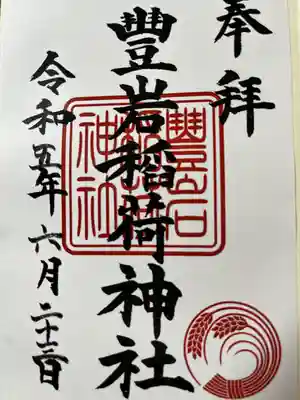 奉拝
豐岩稲荷神社
豐岩稲荷神社
令和五年六月二十三日